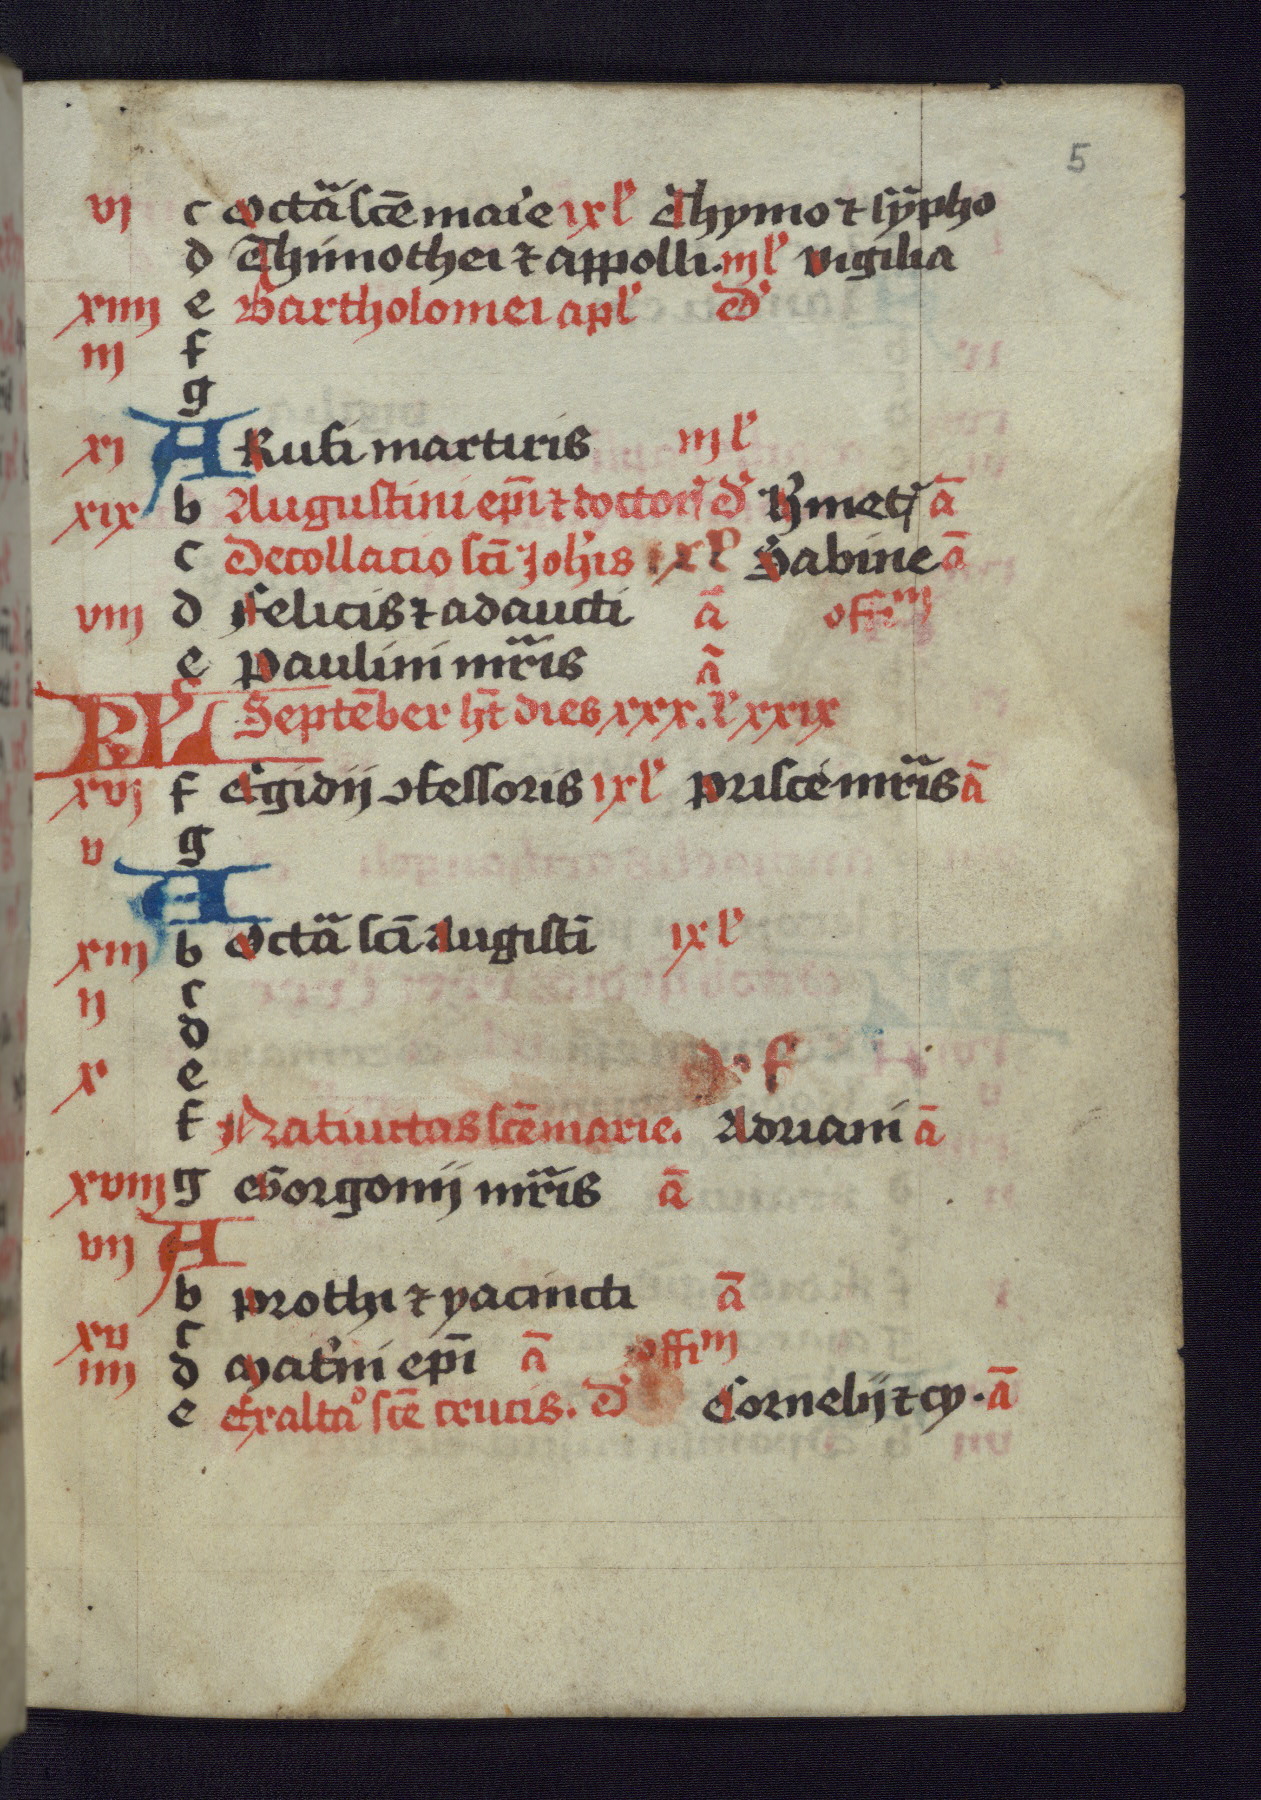 5
vj c Octãa scē marie ix lˀ Thymo ⁊ sỹpho
d Thimothei ⁊ appolli. iij lˀ vigilia
xiiij e Bartholomei aplˀ dˀ
iij f
g
xj A Rufi martiris iij lˀ
xix b Augustini ep̄i ⁊ doctorꝭ dˀ hˀmetꝭ ā
c Decollacio scī Joh̄is ix lˀ Sabine ā
viij d Felicis ⁊ adaucti ā offiᵐ
e Paulini mr̄is ā
KL Septēber ht̄ dies xxx. lˀ xxix
xvj f Egidij ꝯfessoris ix lˀ Prisce mr̄is ā
v g
A
xiij b Octā scī Augistī ix lˀ
ij c
d
x e d f
f Natiuitas scē marie. Adriani ā
xviij g Gorgonij mr̄is ā
vij A
b Prothi ⁊ yacincti ā
xv c
iiij d Matˀni ep̄i ā offiᵐ
e Exaltaᵒ scē crucis. dˀ Cornelij ⁊ cy. ā